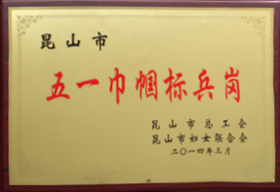 昆山市
五一巾帼标兵岗
昆山市总工会
昆山市妇女联合会
二〇一四年三月